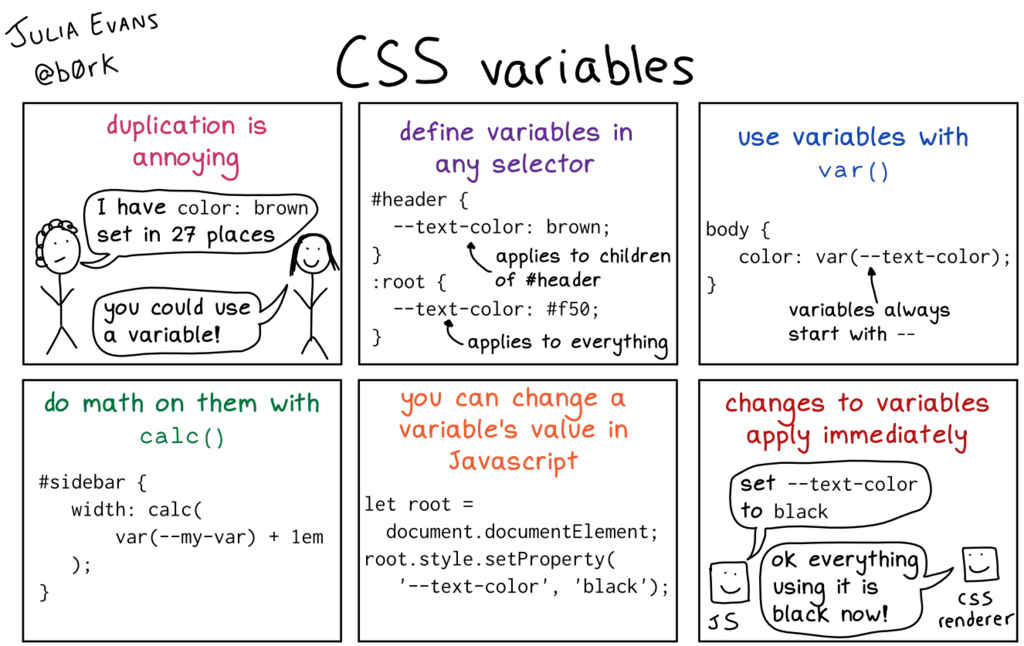 JULIA EVANS
@b0rk
CSS variables
duplication is
annoying
I have color: brown
set in 27 places
you could use
a variable!
define variables in
any selector
#header {
--text-color: brown;
}
applies to children
of #header
:root {
--text-color: #f50;
}
applies to everything
use variables with
var()
body {
color: var(--text-color);
}
variables always
start with --
do math on them with
calc()
#sidebar {
width: calc(
var(--my-var) + 1em
);
}
you can change a
variable's value in
Javascript
let root =
document.documentElement;
root.style.setProperty(
'--text-color', 'black');
changes to variables
apply immediately
set --text-color
to black
ok everything
using it is
black now!
JS
CSS
renderer